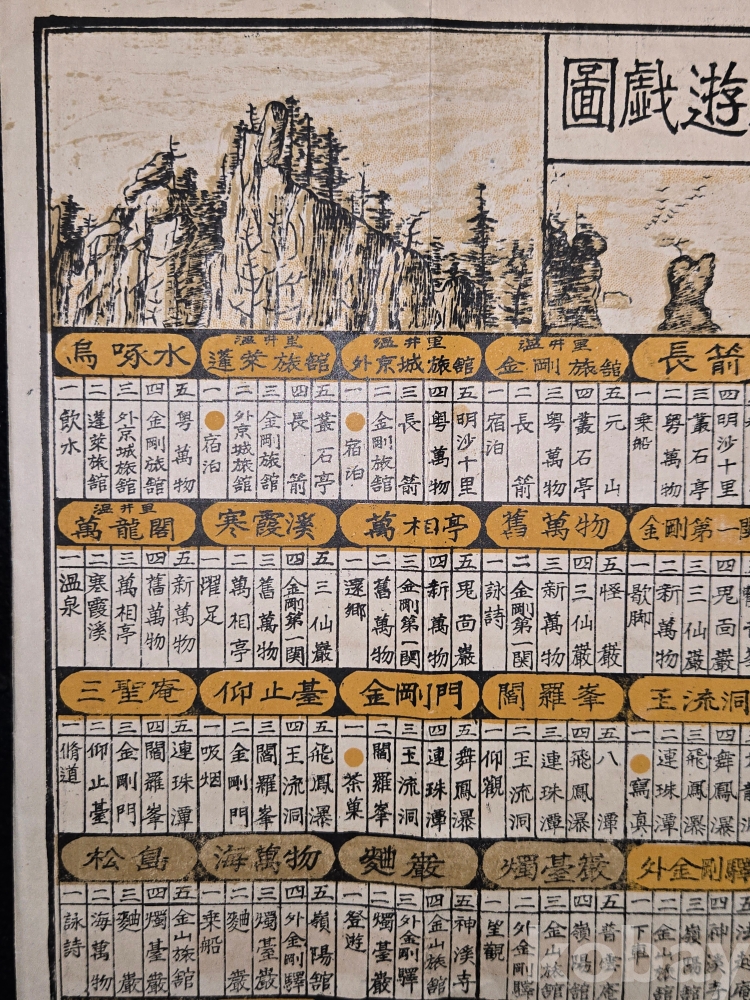 遊戱圖
烏啄水
一 飮水
二 蓬萊旅舘
三 外京城旅舘
四 金剛旅舘
五 粤萬物
溫井里
蓬萊旅舘
一 宿泊
二 外京城旅舘
三 金剛旅舘
四 長箭
五 叢石亭
溫井里
外京城旅舘
一 宿泊
二 金剛旅舘
三 長箭
四 粤萬物
五 明沙十里
溫井里
金剛旅舘
一 宿泊
二 長箭
三 粤萬物
四 叢石亭
五 元山
長箭
一 乘船
二 粤萬物
三 叢石亭
四 明沙十里
溫井里
萬龍閣
一 溫泉
二 寒霞溪
三 萬相亭
四 舊萬物
五 新萬物
寒霞溪
一 濯足
二 萬相亭
三 舊萬物
四 金剛第一関
五 三仙巖
萬相亭
一 還鄕
二 舊萬物
三 金剛第一関
四 新萬物
五 鬼面巖
舊萬物
一 詠詩
二 金剛第一関
三 新萬物
四 三仙巖
五 怪巖
金剛第一関
一 歇脚
二 新萬物
三 三仙巖
四 鬼面巖
三聖庵
一 脩道
二 仰止臺
三 金剛門
四 閻羅峯
五 連珠潭
仰止臺
一 吸烟
二 金剛門
三 閻羅峯
四 玉流洞
五 飛鳳瀑
金剛門
一 茶菓
二 閻羅峯
三 玉流洞
四 連珠潭
五 舞鳳瀑
閻羅峯
一 仰觀
二 玉流洞
三 連珠潭
四 飛鳳瀑
五 八潭
玉流洞
一 寫真
二 連珠潭
三 飛鳳瀑
四 舞鳳瀑
松島
一 詠詩
二 海萬物
三 麯巖
四 燭臺巖
五 金山旅舘
海萬物
一 乘船
二 麯巖
三 燭臺巖
四 外金剛驛
五 嶺陽舘
麯巖
一 登遊
二 燭臺巖
三 外金剛驛
四 金山旅舘
五 神溪寺
燭臺巖
一 坐觀
二 外金剛驛
三 金山旅舘
四 嶺陽舘
五 普雲庵
外金剛驛
一 下車
二 金山旅舘
三 嶺陽舘
四 神溪寺
kobay